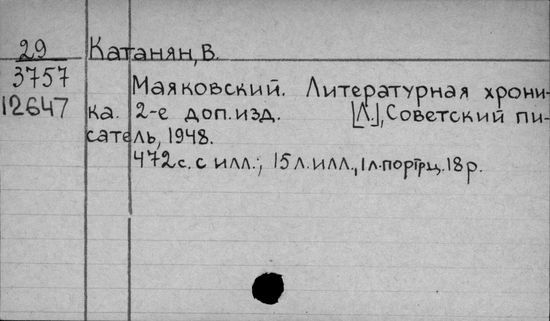 29 Катанян, В.
3757
Маяковский. Литературная хрони-
12647 ка. 2-е доп. изд. [Л.], Советский пи-
сатель, 1948.
472 с. с илл.; 15 л. илл., 1 л. портр. 18 р.